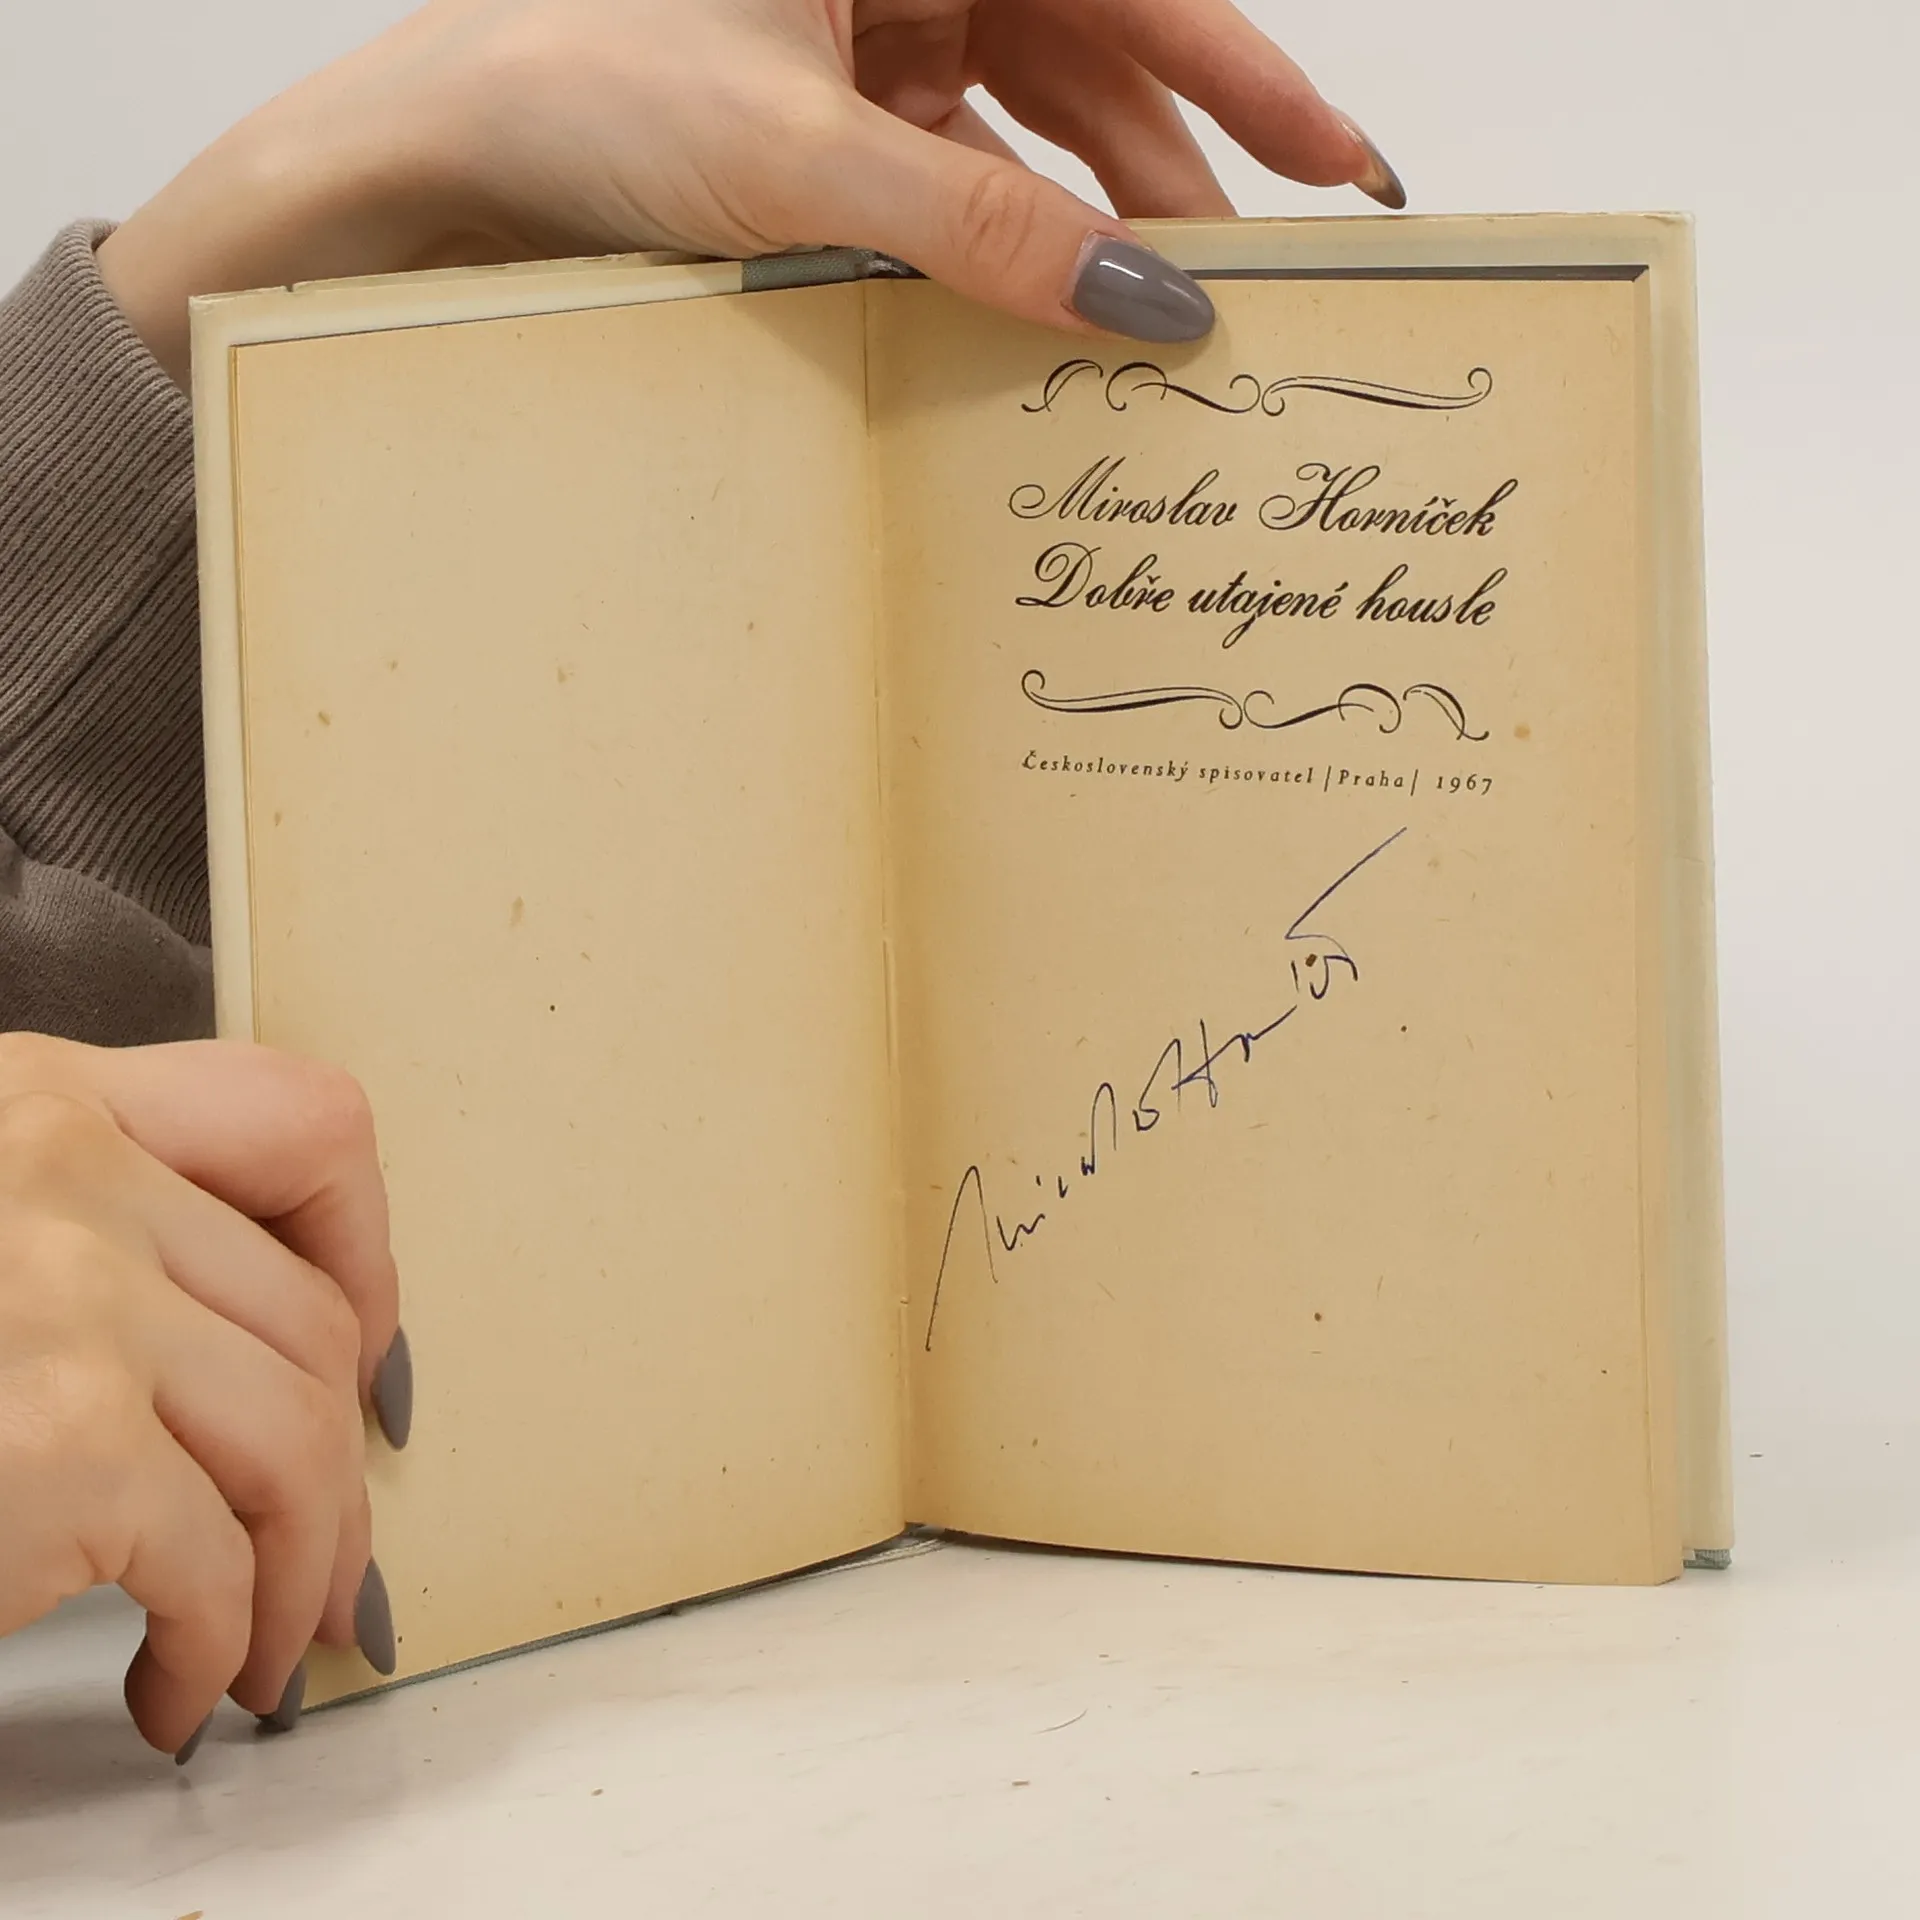 Miroslav Horníček
Dobře utajené housle
Československý spisovatel | Praha | 1967